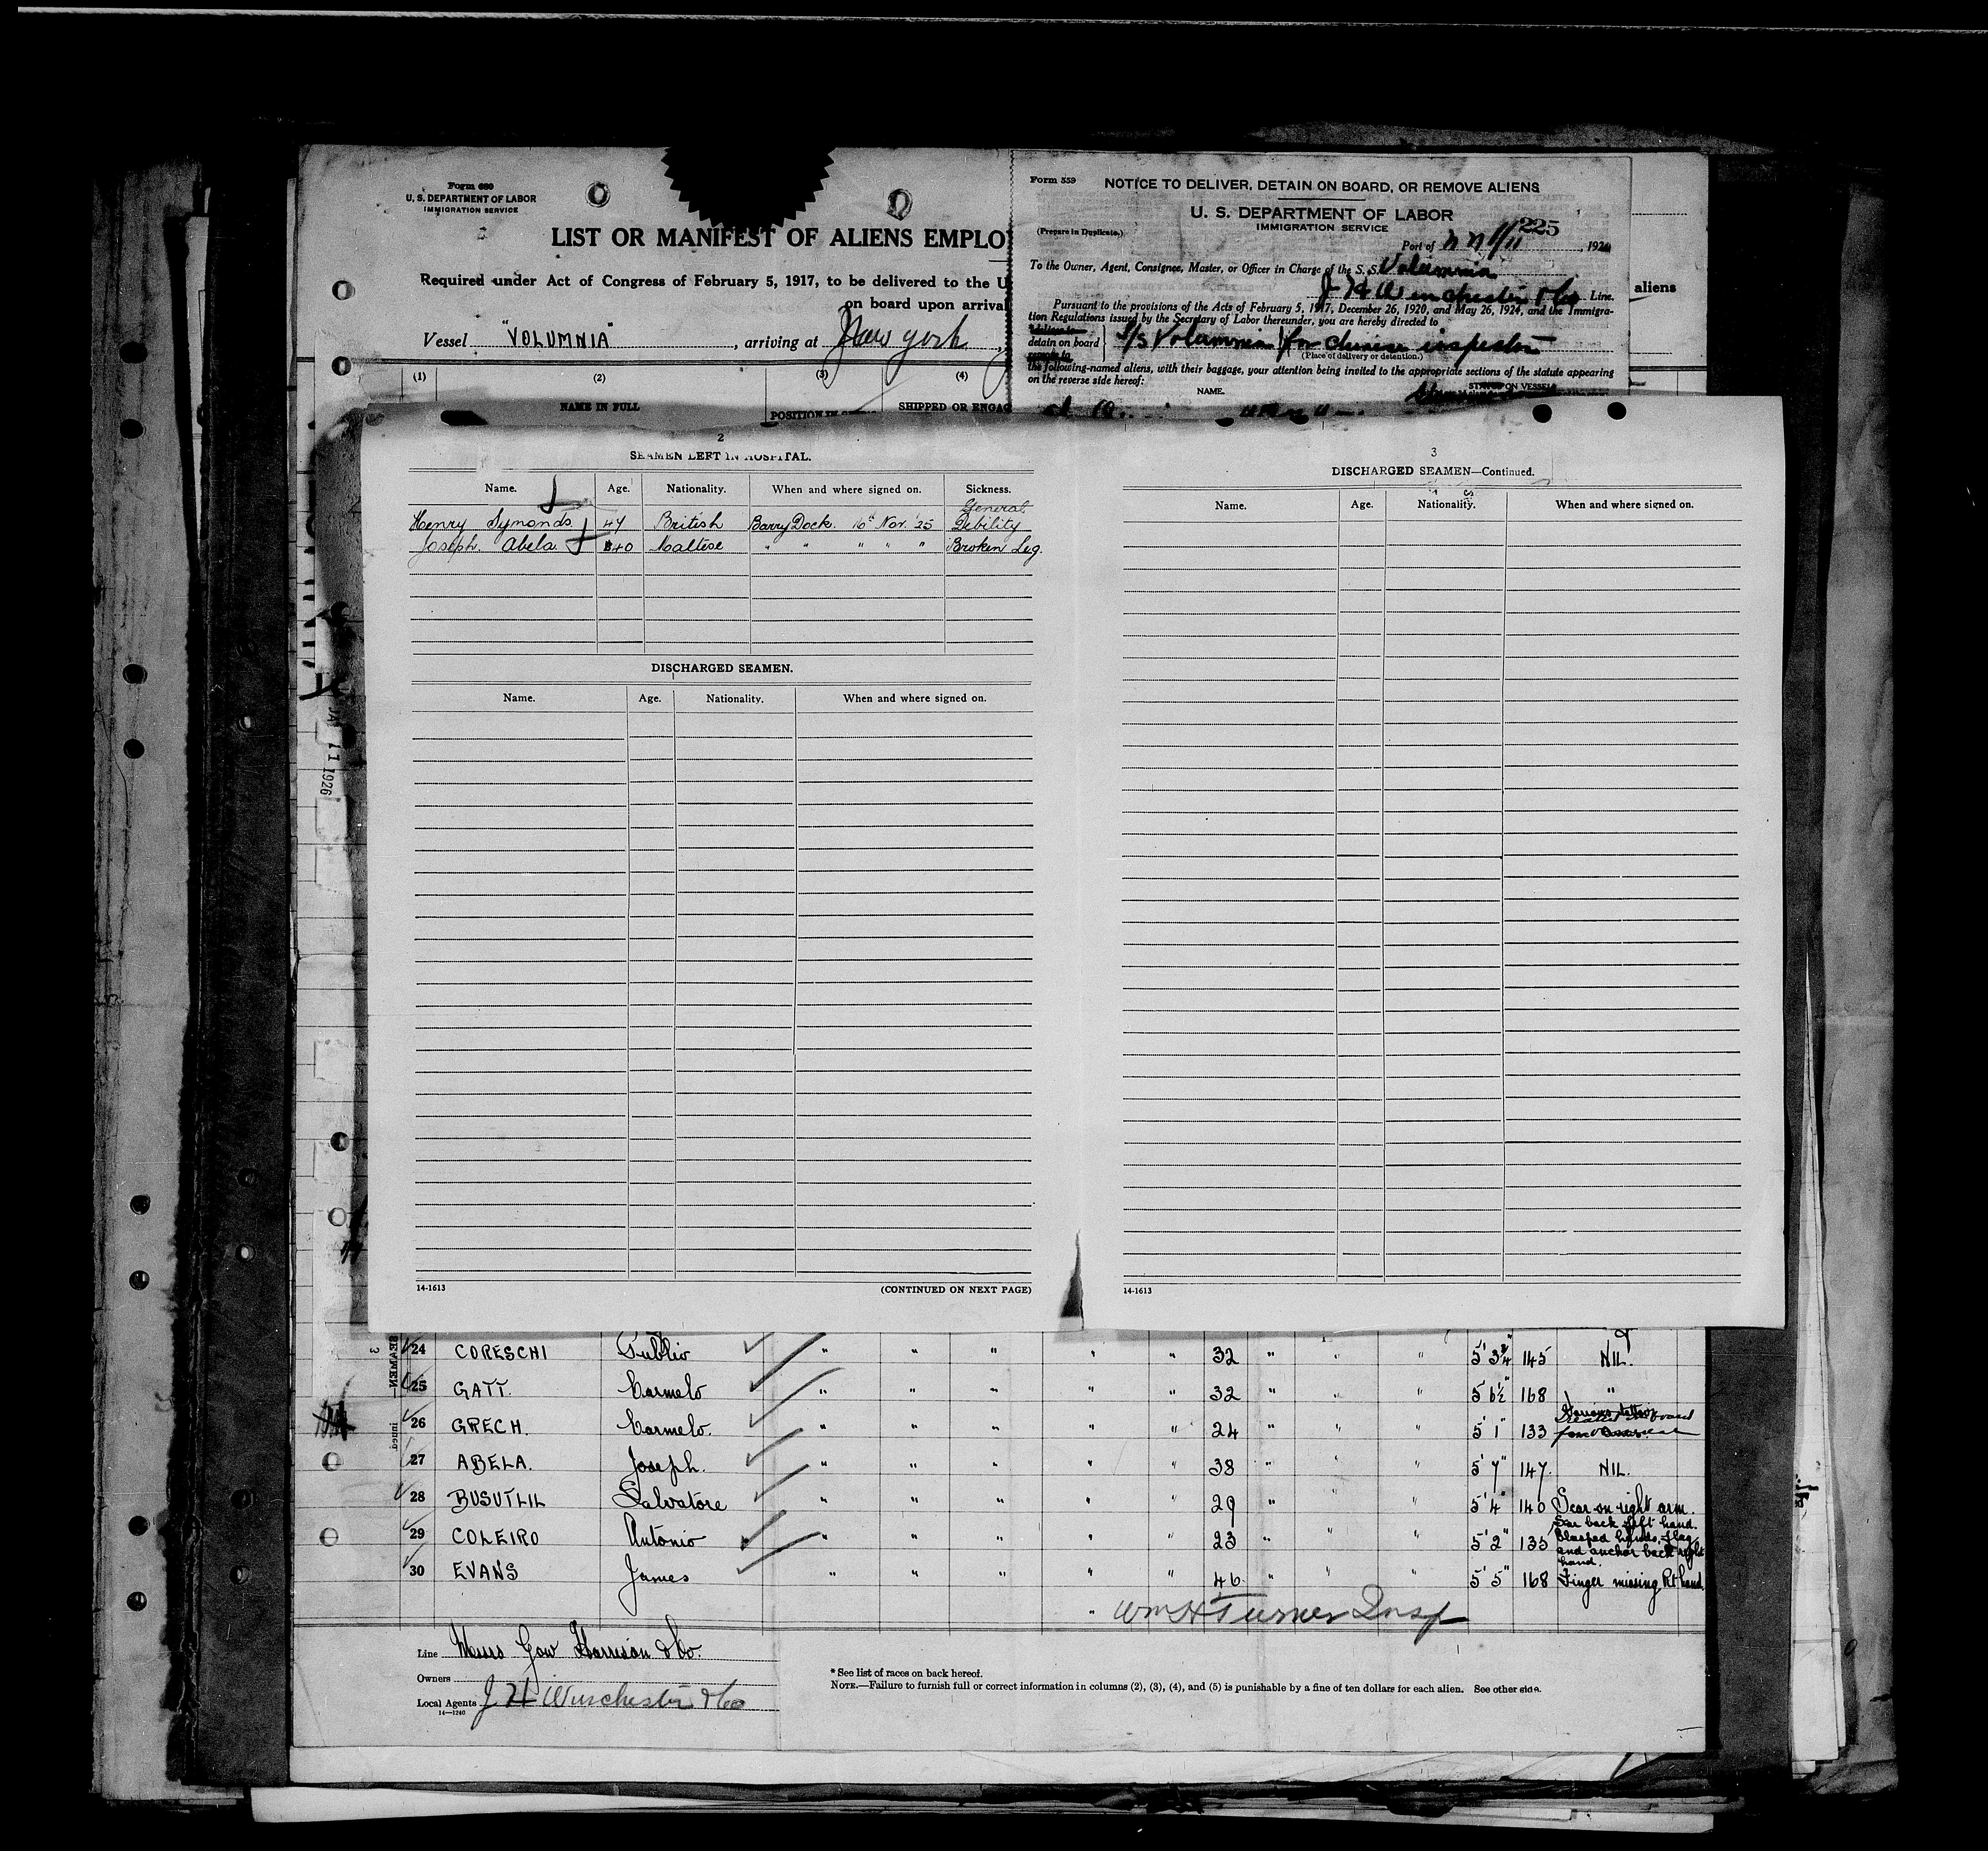 Form 680
U. S. DEPARTMENT OF LABOR
IMMIGRATION SERVICE
LIST OR MANIFEST OF ALIENS EMPLO
Required under Act of Congress of February 5, 1917, to be delivered to the U
on board upon arrival
Vessel "VOLUMNIA", arriving at New York,
(1) (2) (3) (4)
NAME IN FULL POSITION IN SHIPPED OR ENGAG
Form 559
NOTICE TO DELIVER, DETAIN ON BOARD, OR REMOVE ALIENS
U. S. DEPARTMENT OF LABOR
IMMIGRATION SERVICE
(Prepare in Duplicate.)
225
Port of N Y 1/11, 192
To the Owner, Agent, Consignee, Master, or Officer in Charge of the S. S. Volumnia
J H Winchester & Co Line.
Pursuant to the provisions of the Acts of February 5, 1917, December 26, 1920, and May 26, 1924, and the Immigra-
tion Regulations issued by the Secretary of Labor thereunder, you are hereby directed to
detain on board S/S Volumnia for Chinese inspector
(Place of delivery or detention.)
the following-named aliens, with their baggage, your attention being invited to the appropriate sections of the statute appearing
on the reverse side hereof:
NAME. STATUS ON VESSEL
aliens
2
SEAMEN LEFT IN HOSPITAL.
Name. Age. Nationality. When and where signed on. Sickness.
Henry Symonds 47 British Barry Dock. 10th Nov. '25 General Debility
Joseph. Abela. 40 Maltese " " " " " Broken Leg.
DISCHARGED SEAMEN.
Name. Age. Nationality. When and where signed on.
14-1613 (CONTINUED ON NEXT PAGE)
3
DISCHARGED SEAMEN—Continued.
Name. Age. Nationality. When and where signed on.
14-1613
JAN 11 1926
24 CORESCHI Publio " " " " " 32 " " " 5' 3¾" 145 NIL.
25 GATT. Carmelo " " " " " 32 " " " 5 6½" 168 "
26 GRECH. Carmelo. " " " " " 24 " " " 5' 1" 133
27 ABELA. Joseph. " " " " " 38 " " " 5' 7" 147. NIL.
28 BUSUTLIL Salvatore " " " " " 29 " " " 5' 4" 140 Scar on right arm.
29 COLEIRO Antonio " " " " " 23 " " " 5' 2" 135 Scar back left hand. Clasped hands, flag and anchor back right hand.
30 EVANS James " " " " " 46 " " " 5' 5" 168 Finger missing Rt hand
" Wm H Turner Insp
Line Messrs Gow Harrison & Co.
Owners
Local Agents J H Winchester & Co
14—1240
* See list of races on back hereof.
NOTE.—Failure to furnish full or correct information in columns (2), (3), (4), and (5) is punishable by a fine of ten dollars for each alien. See other side.